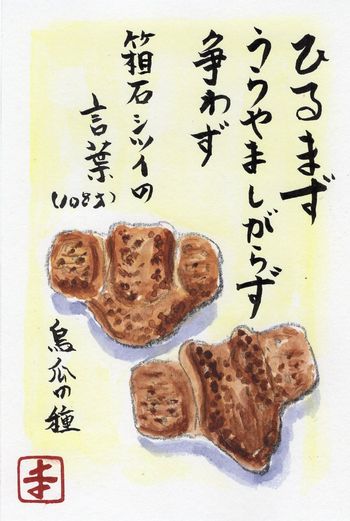 ひるまず
うらやましがらず
争わず
箱石シツイの
言葉
(108才)
烏瓜の種